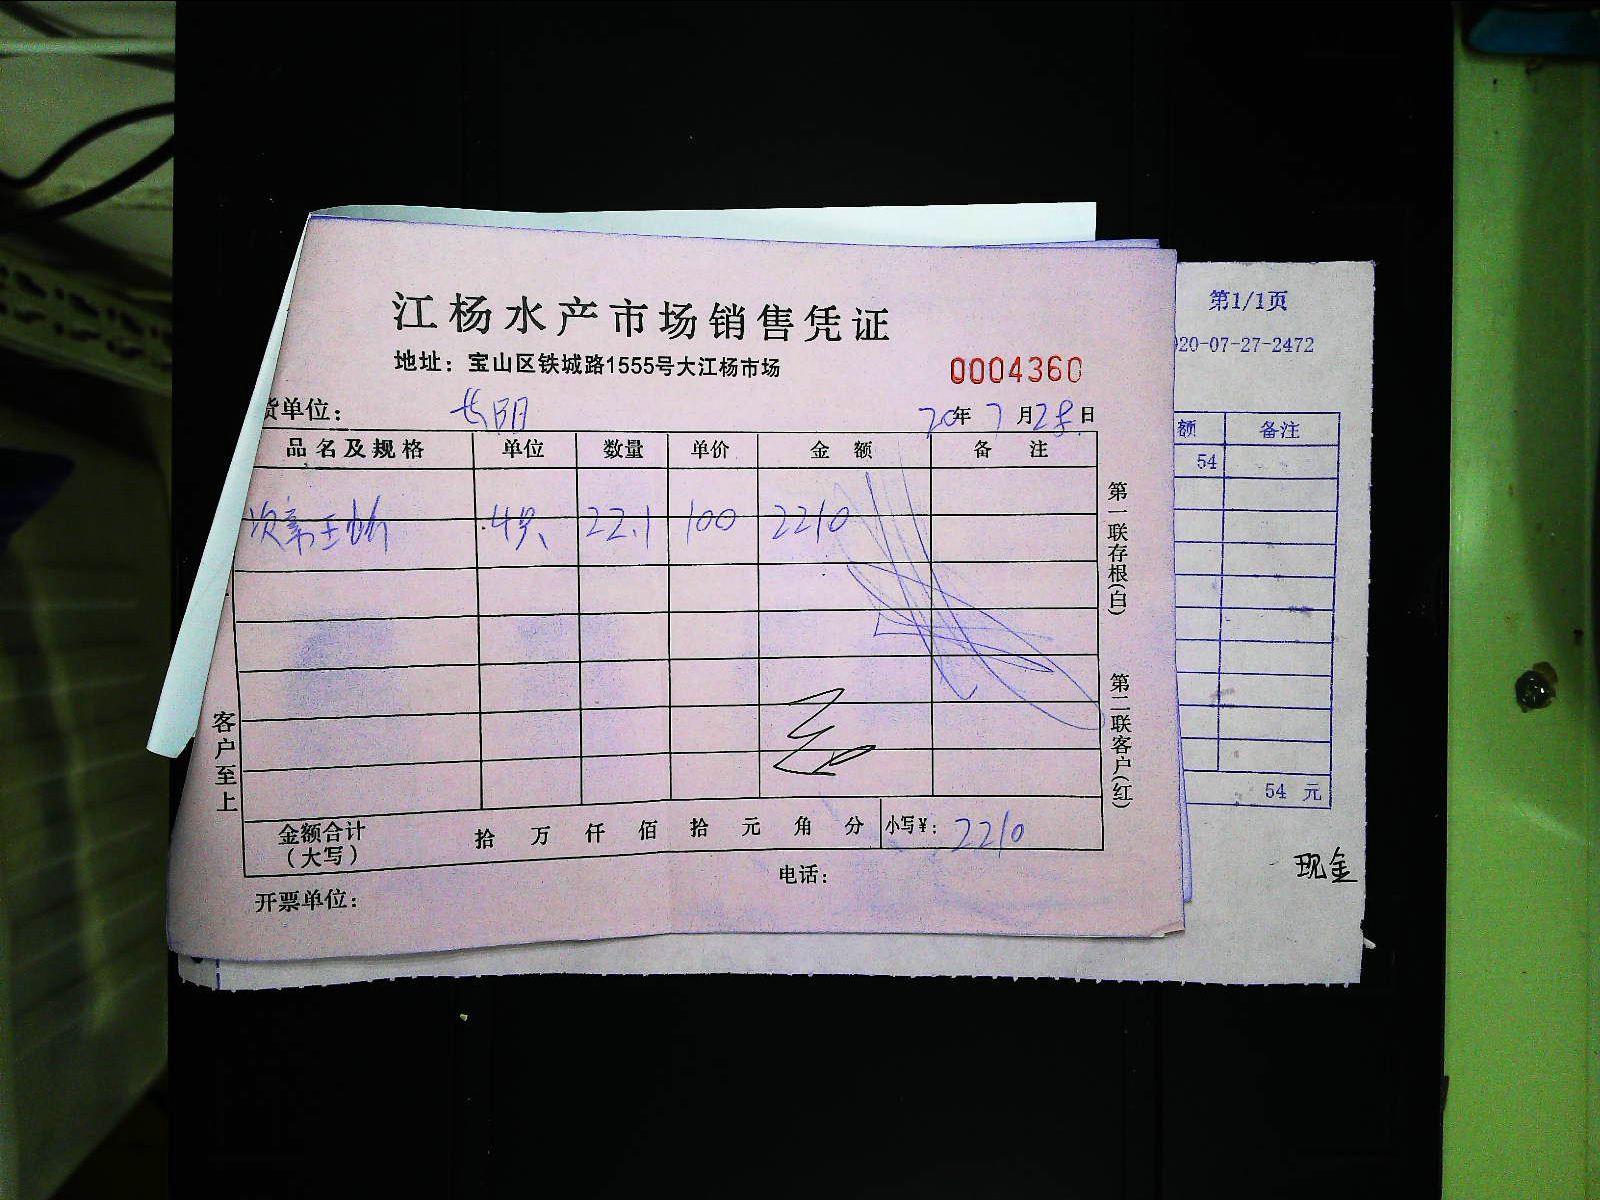 江杨水产市场销售凭证
地址：宝山区铁城路1555号大江杨市场
0004360
货单位：
20年7月28日
品名及规格 单位 数量 单价 金额 备注
4只 22.1 100 2210
第一联存根(白)
第二联客户(红)
客户至上
金额合计（大写） 拾 万 仟 佰 拾 元 角 分 小写￥：2210
开票单位：
电话：
第1/1页
20-07-27-2472
额 备注
54
54 元
现金